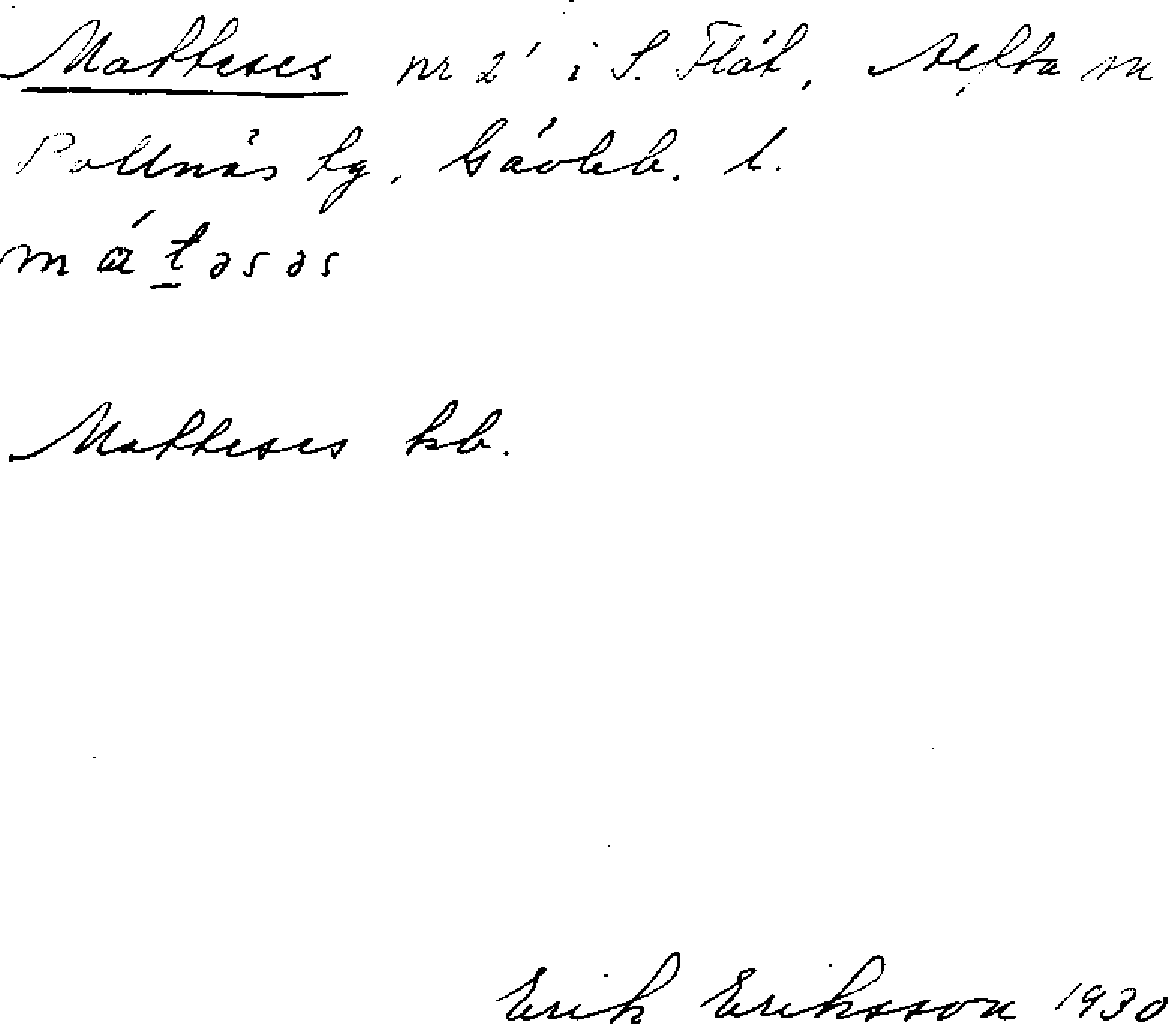 Matteses nr 2' i S. Flät, Alfta sn
Bollnäs tg, Gävleb. l.
mátəsəs
Matteses kb.
Erik Eriksson 1930